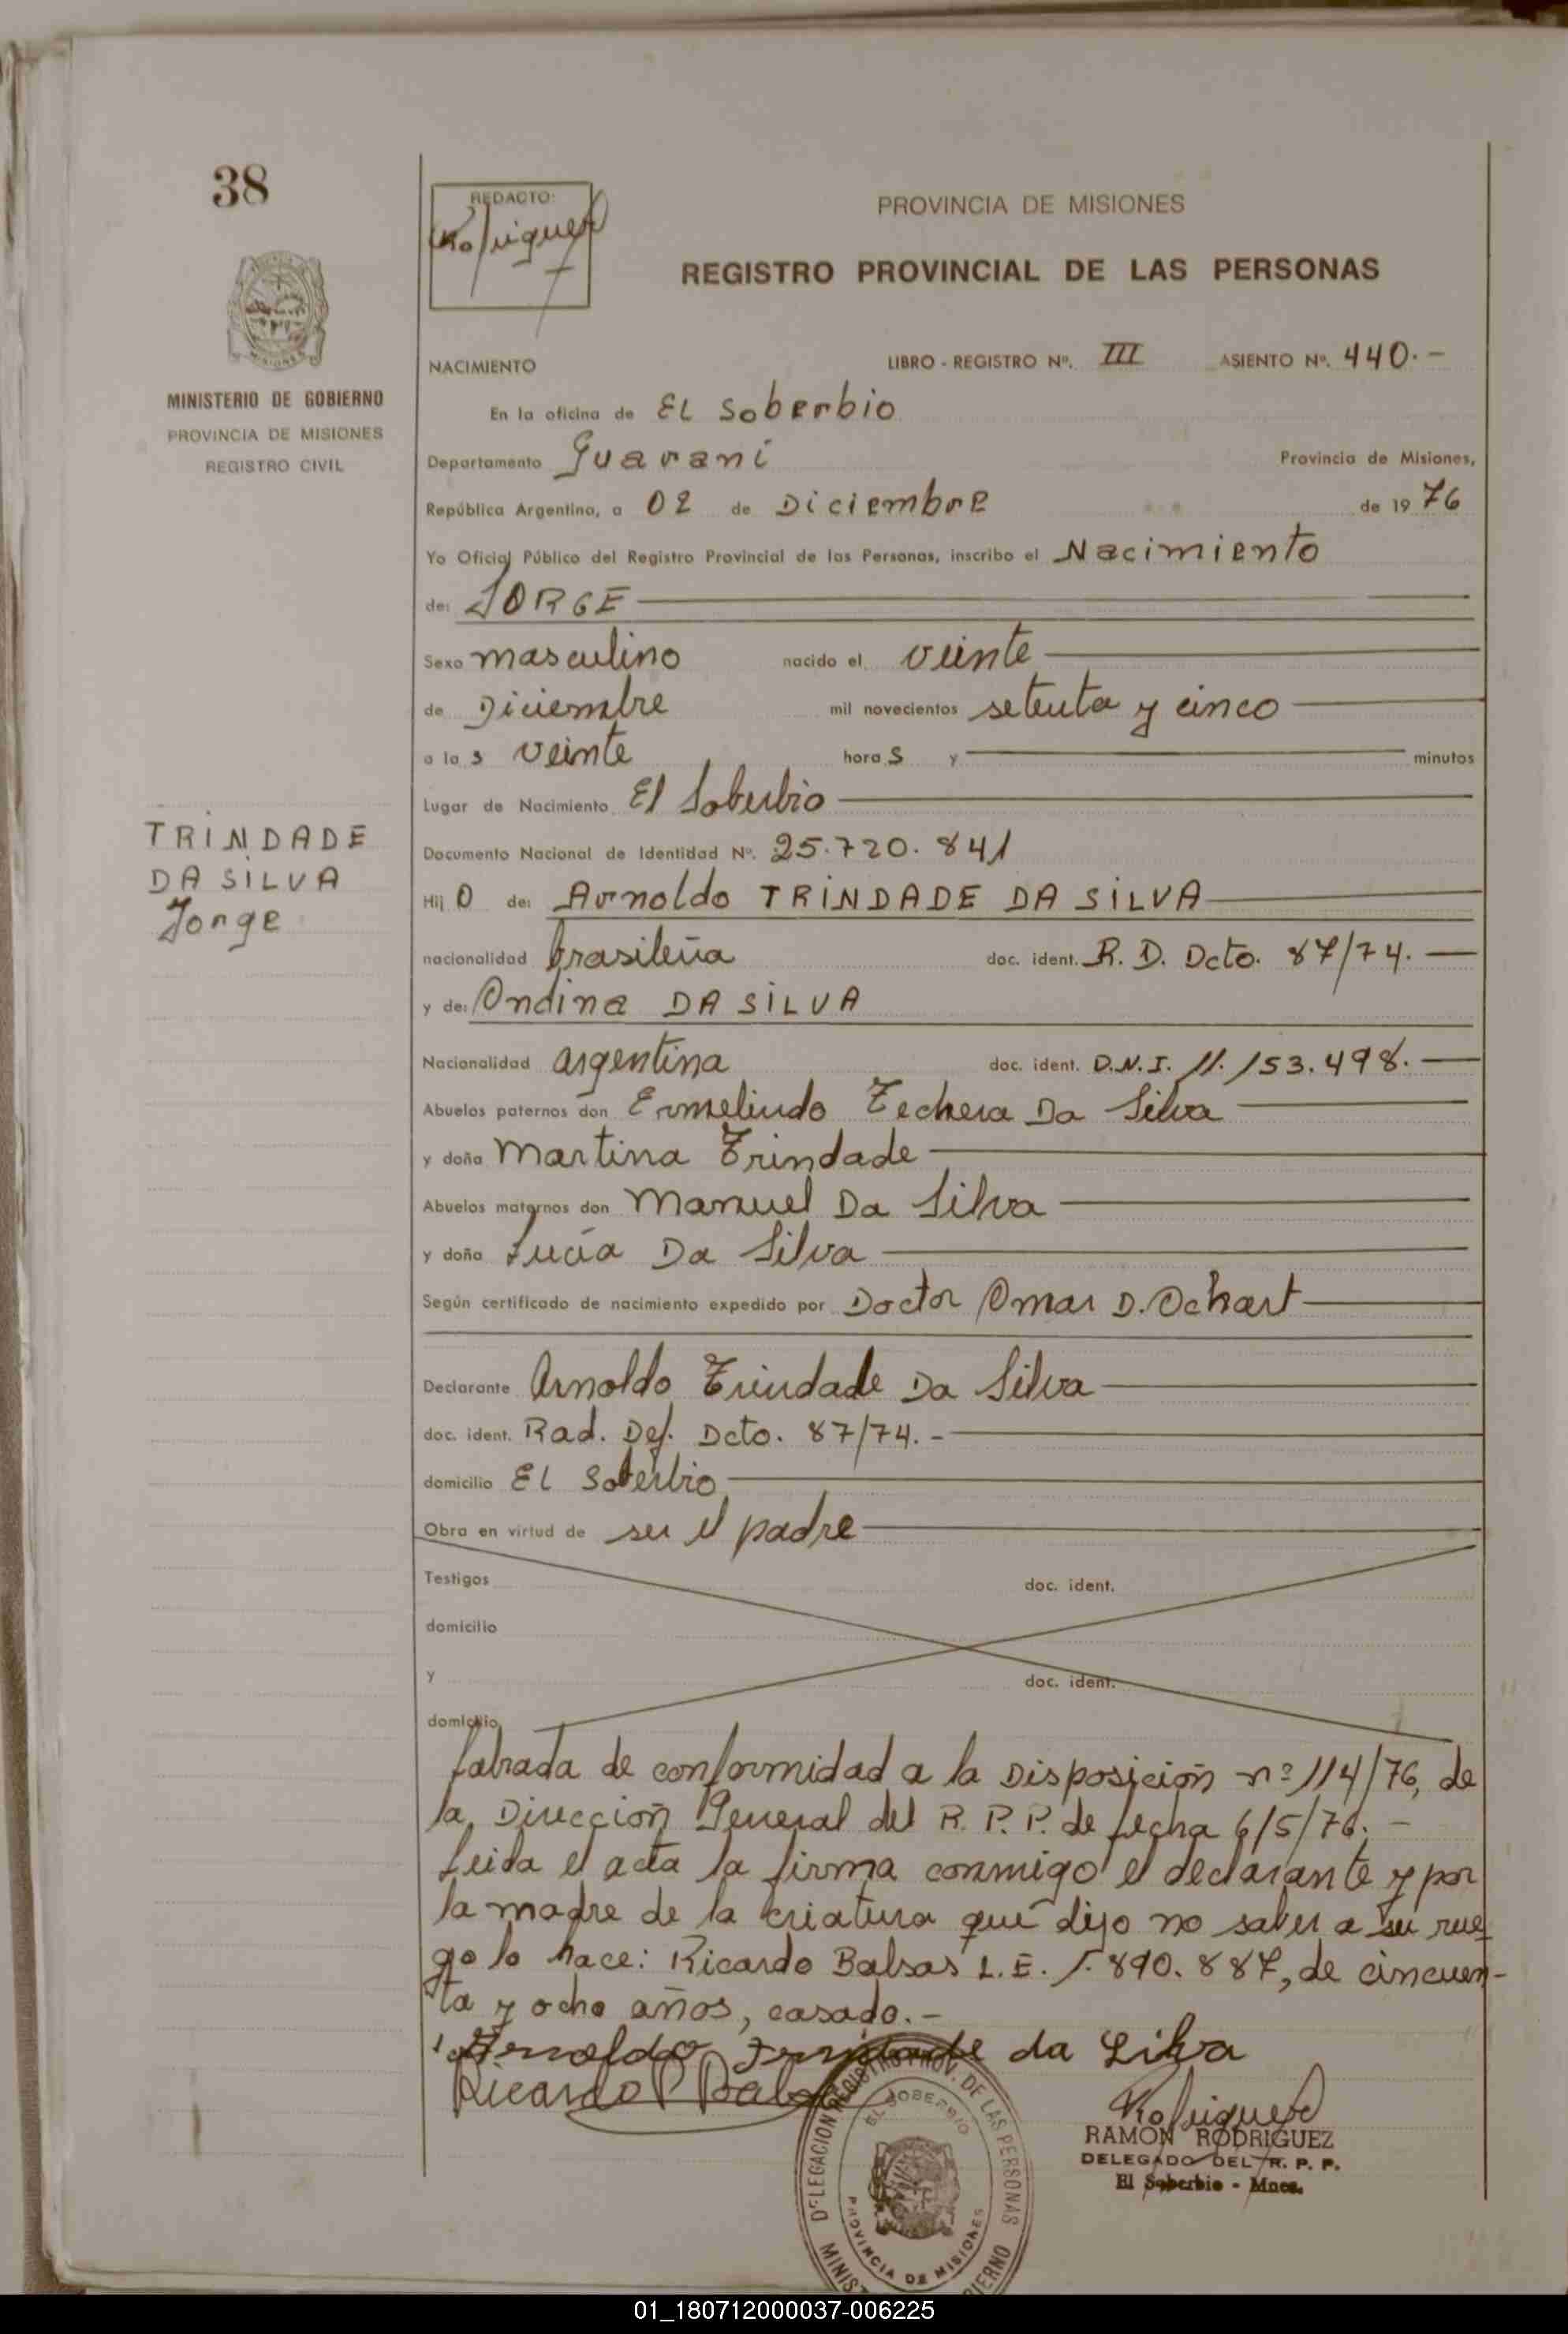 38
REDACTO:
Rodriguez
PROVINCIA DE MISIONES
REGISTRO PROVINCIAL DE LAS PERSONAS
MINISTERIO DE GOBIERNO
PROVINCIA DE MISIONES
REGISTRO CIVIL
NACIMIENTO LIBRO - REGISTRO Nº. III ASIENTO Nº. 440.-
En la oficina de EL Soberbio
Departamento Guaraní Provincia de Misiones,
República Argentina, a 02 de Diciembre de 19 76
Yo Oficial Público del Registro Provincial de las Personas, inscribo el Nacimiento
de: JORGE
Sexo masculino nacido el veinte
de Diciembre mil novecientos setenta y cinco
a la s veinte hora s y minutos
Lugar de Nacimiento El Soberbio
TRINDADE
DA SILVA
Jorge
Documento Nacional de Identidad Nº. 25.720.841
Hij o de: Arnoldo TRINDADE DA SILVA
nacionalidad brasileña doc. ident. R. D. Dcto. 87/74.
y de: Ondina DA SILVA
Nacionalidad argentina doc. ident. D.N.I. 11.153.498.
Abuelos paternos don Ermelindo Techera Da Silva
y doña Martina Trindade
Abuelos maternos don Manuel Da Silva
y doña Lucía Da Silva
Según certificado de nacimiento expedido por Doctor Omar D. Ochart
Declarante Arnoldo Trindade Da Silva
doc. ident. Rad. Def. Dcto. 87/74.-
domicilio EL Soberbio
Obra en virtud de ser el padre
Testigos doc. ident.
domicilio
y doc. ident.
domicilio
Labrada de conformidad a la Disposición nº 114/76, de
la Dirección General del R. P. P. de fecha 6/5/76.-
Leída el acta la firma conmigo el declarante y por
la madre de la criatura que dijo no saber a su rue
go lo hace: Ricardo Balsas L.E. 1.890.887, de cincuen-
ta y ocho años, casado.-
Arnoldo Trindade da Silva
Ricardo Balsas
Rodriguez
RAMON RODRIGUEZ
DELEGADO DEL R. P. P.
El Soberbio - Mnes.
DELEGACION REGISTRO PROV. DE LAS PERSONAS
EL SOBERBIO
PROVINCIA DE MISIONES
01_180712000037-006225